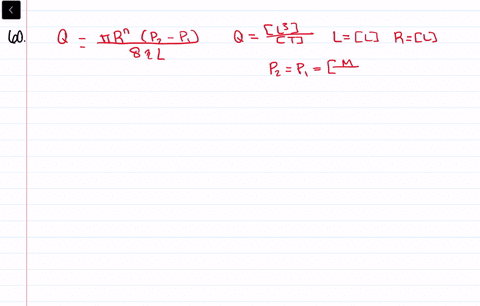 60. Q = πRⁿ (P₂ - P₁) / 8ηL Q = [L³] / [T] L = [L] R = [L]
P₂ = P₁ = [M